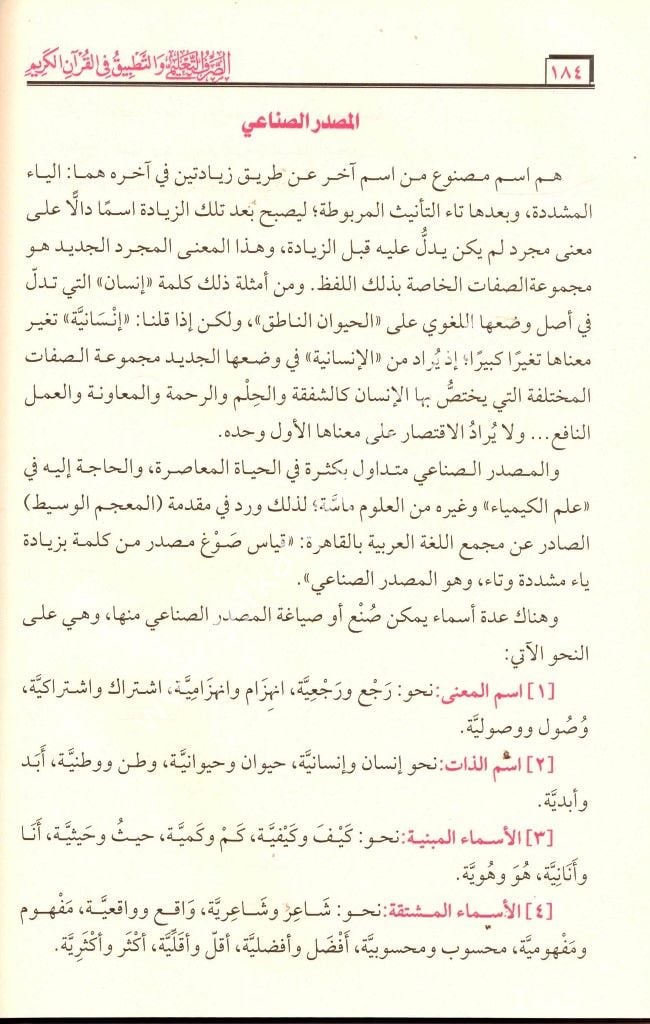 ١٨٤
الصَّرْف التَّعْلِيمي وَالتَّطْبِيقُ فِي القُرْآنِ الكَرِيمِ
المصدر الصناعي
هـم اسـم مـصنوع مـن اسـم آخـر عـن طريـق زيـادتين في آخـره همـا: اليـاء
المشددة، وبعدها تاء التأنيث المربوطة؛ ليصبح بعد تلك الزيادة اسمًا دالًّا على
معنى مجرد لم يكن يـدلُّ عليه قبل الزيـادة، وهـذا المعنى المجرد الجديـد هـو
مجموعة الصفات الخاصة بذلك اللفظ. ومن أمثلة ذلك كلمة «إنسان» التي تدلّ
في أصل وضعها اللغوي على «الحيوان الناطق»، ولكـن إذا قلنـا: «إِنْسَانِيَّة» تغير
معناها تغيرًا كبيرًا؛ إذ يُراد من «الإنسانية» في وضعها الجديد مجموعـة الـصفات
المختلفة التي يختصُّ بها الإنسان كالشفقة والحِلْم والرحمة والمعاونة والعمل
النافع... ولا يُرادُ الاقتصار على معناها الأول وحده.
والمـصدر الـصناعي متـداول بكثـرة في الحيـاة المعاصـرة، والحاجـة إليـه في
«علم الكيمياء» وغيره من العلوم ماسَّة؛ لذلك ورد في مقدمة (المعجم الوسيط)
الصادر عن مجمع اللغة العربية بالقاهرة: «قياس صَـوْغ مـصدر مـن كلمـة بزيـادة
ياء مشددة وتاء، وهو المصدر الصناعي».
وهناك عدة أسماء يمكن صُنْع أو صياغة المـصدر الصناعي منهـا، وهـي علـى
النحو الآتي:
[١] اسم المعنى: نحو: رَجْع ورَجْعِيَّة، انهِزَام وانهزَامِيَّـة، اشـتراك واشـتراكيَّة،
وُصُول ووصوليَّة.
[٢] اسْم الذات: نحو إنسان وإنسانيَّة، حيوان وحيوانيَّـة، وطـن ووطنيَّـة، أَبَـد
وأبديَّة.
[٣] الأسماء المبنية: نحـو: كَيْـفَ وكَيْفِيَّـة، كَـمْ وكَميَّـة، حيـثُ وحَيثيَّـة، أَنَـا
وأَنَانِيَّة، هُوَ وهُويَّة.
[٤] الأسـماء المـشتقة: نحـو: شَـاعِرْ وشَـاعِريَّة، وَاقـع وواقعيَّـة، مَفْهـوم
ومَفْهوميَّة، محسوب ومحسوبيَّة، أَفْضَل وأفضليَّة، أقلّ وأقلِّيَّة، أكثَر وأكثَرِيَّة.